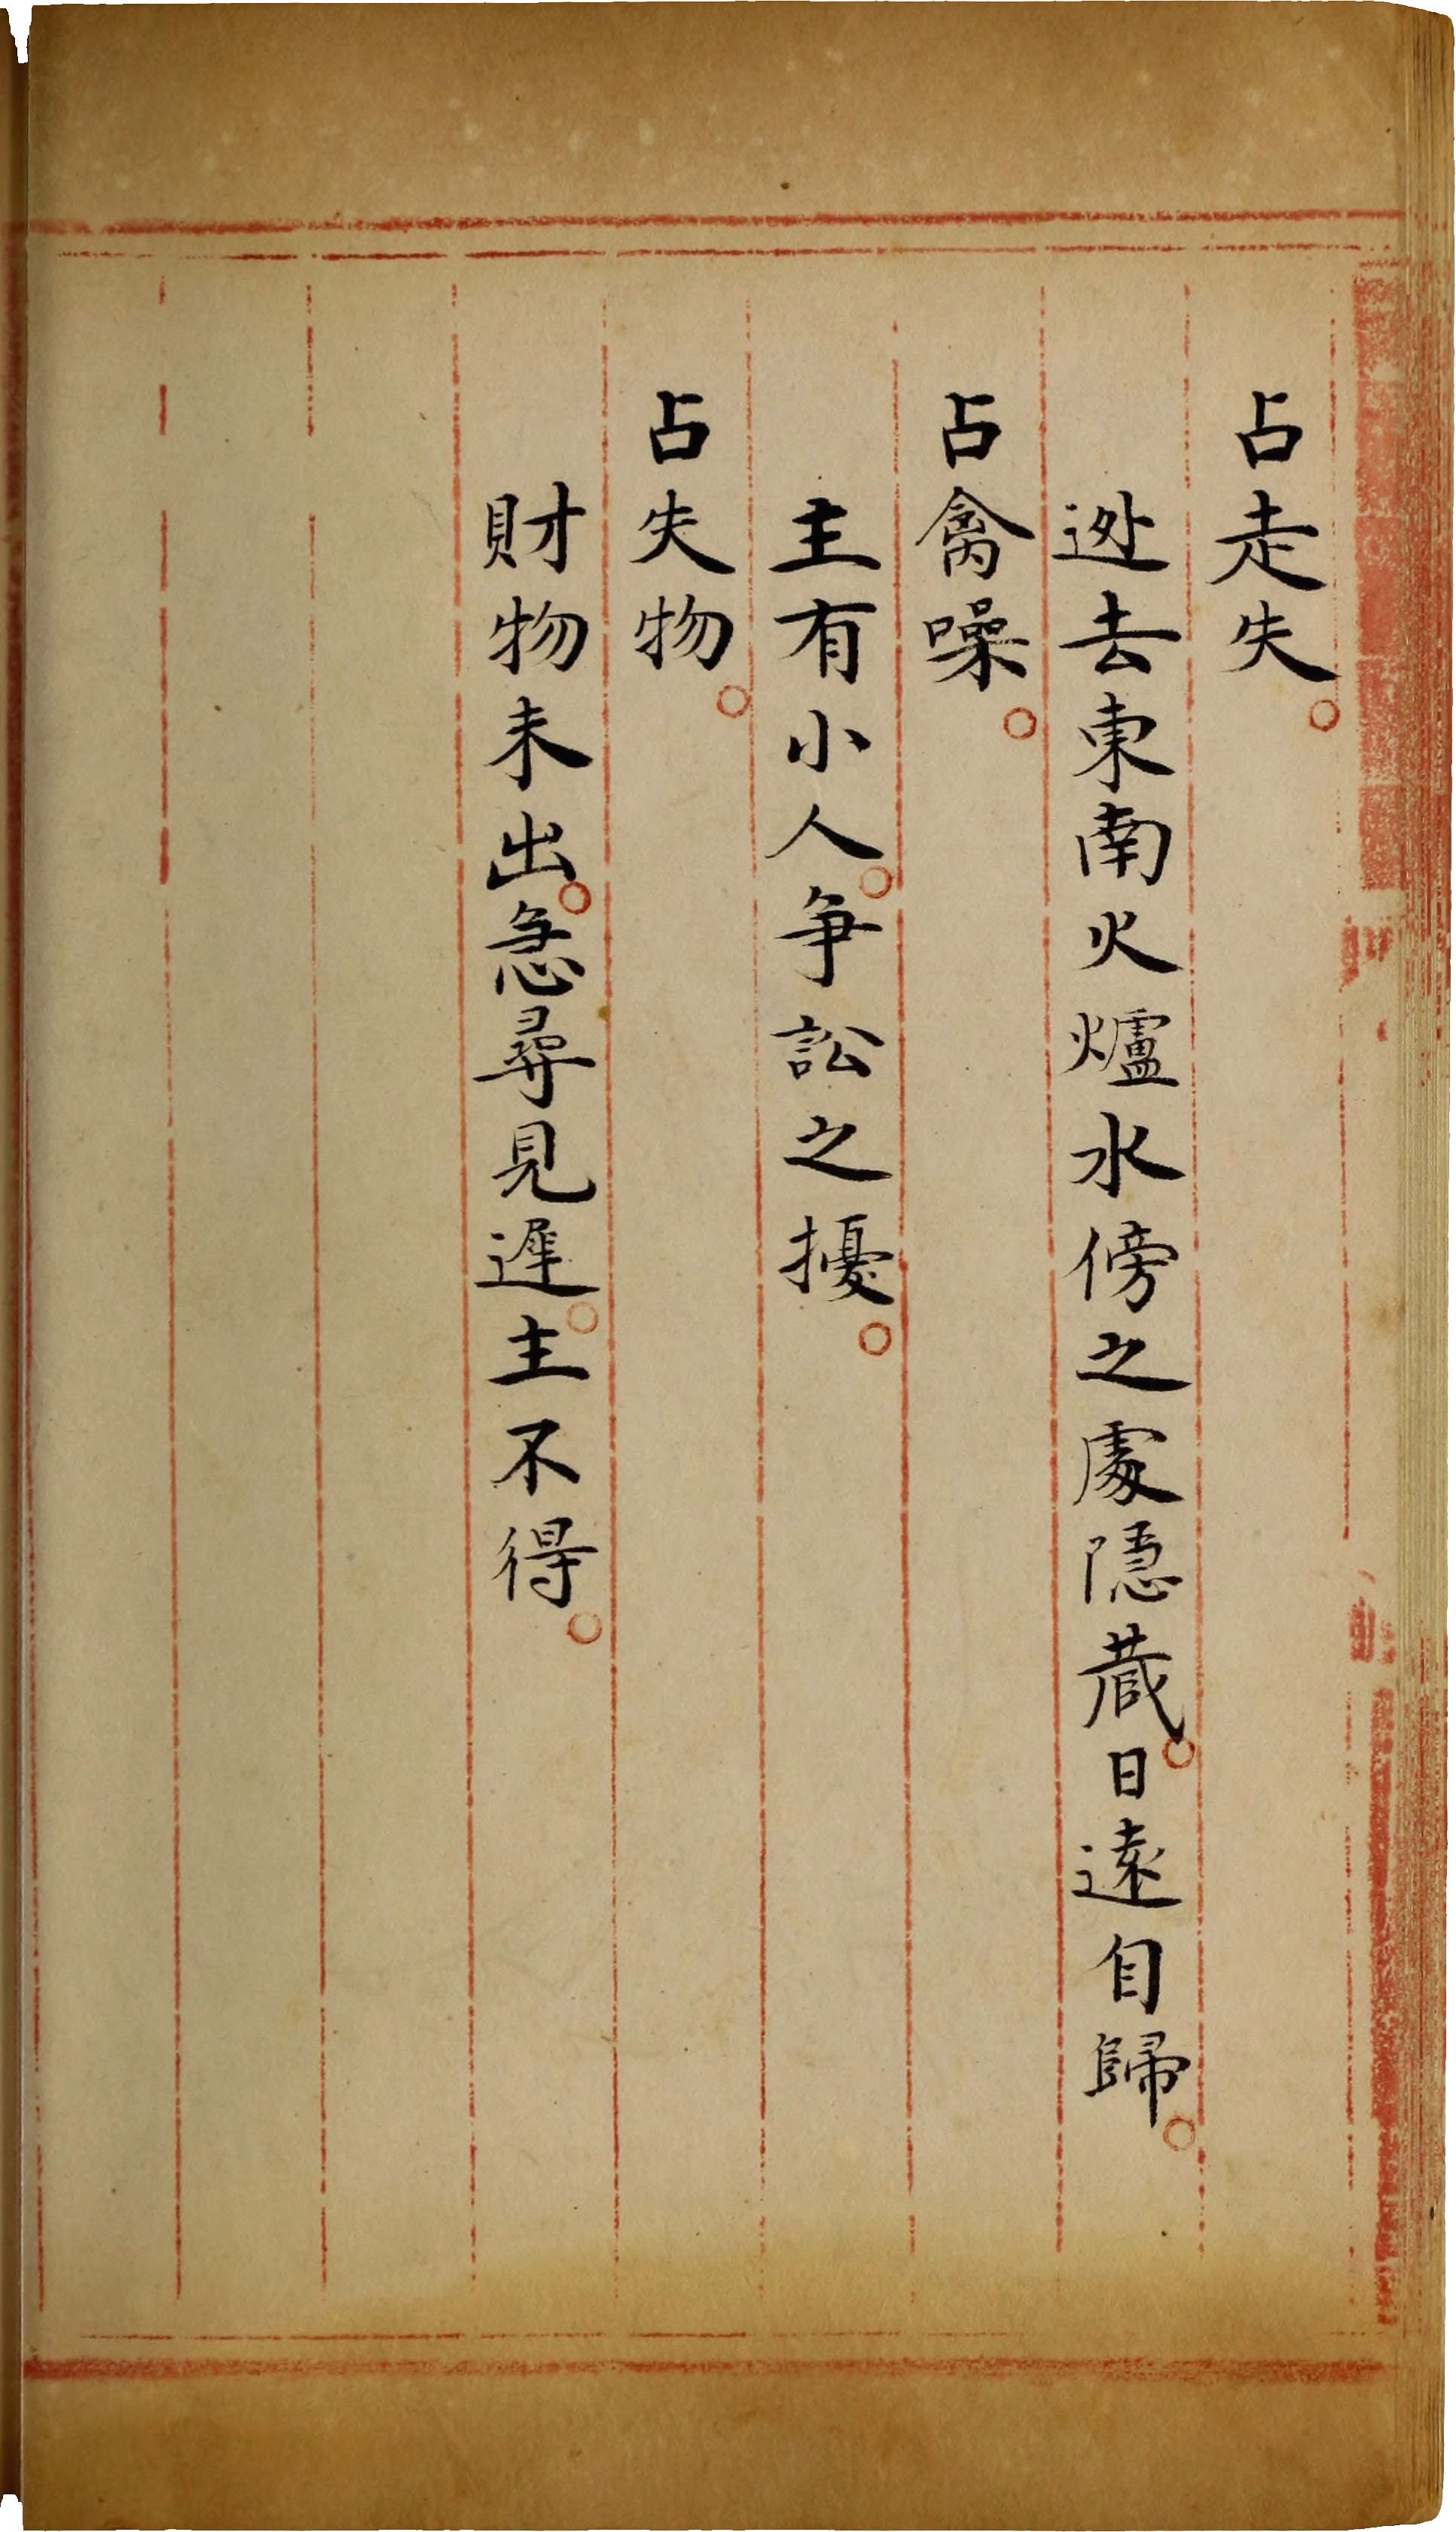 占走失。
迯去東南火爐水傍之處隱蔵。日遠自歸。
占禽噪。
主有小人。爭訟之擾。
占失物。
財物未出。急尋見遲。主不得。